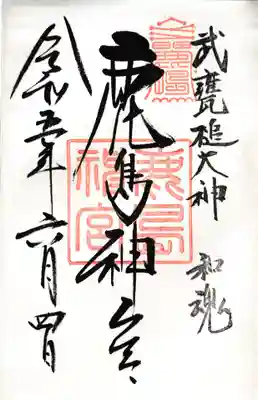 武甕槌大神 和魂
鹿島神宮
鹿島
神宮
令和五年 六月四日